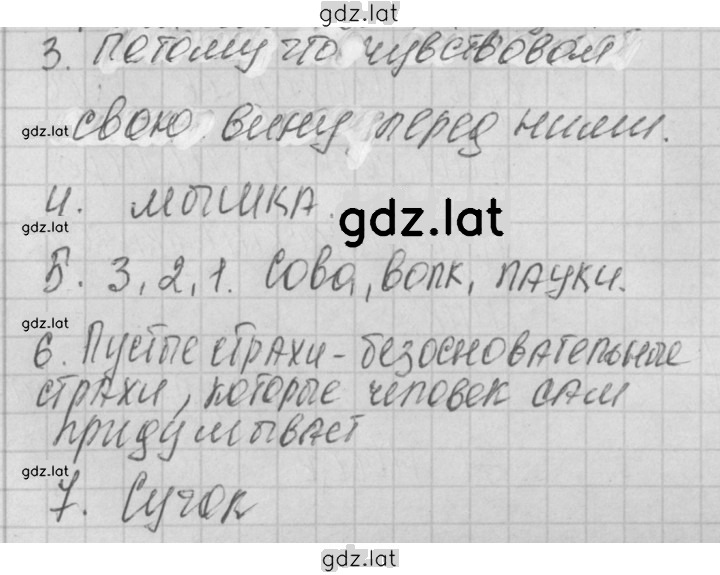 gdz.lat
3. Потому что чувствовал
gdz.lat свою вину перед ними.
4. мышка.
gdz.lat
gdz.lat
5. 3, 2, 1. Сова, волк, пауки.
gdz.lat
6. Пустые страхи - безосновательные
страхи, которые человек сам
придумывает
gdz.lat
7. Сучок
gdz.lat